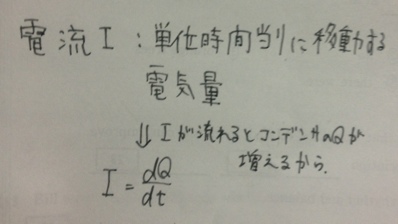 電流I:単位時間当りに移動する
電気量
⇓ Iが流れるとコンデンサのQが
増えるから.
I = dQ/dt